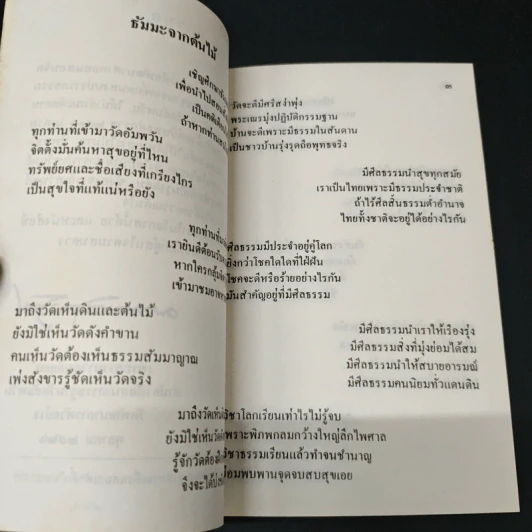 ธัมมะจากต้นไม้
เชิญศึกษา
เพื่อนำไปสอน
เป็นคติเตือน
ถ้าหากท่าน
ทุกท่านที่เข้ามาวัดอัมพวัน
จิตตั้งมั่นค้นหาสุขอยู่ที่ไหน
ทรัพย์ยศและชื่อเสียงที่เกรียงไกร
เป็นสุขใจที่แท้แน่หรือยัง
ทุกท่านที่
เรายินดีต้อนรับ
หากใครกลุ้ม
เข้ามาชมอาห
มาถึงวัดเห็นดินและต้นไม้
ยังมิใช่เห็นวัดดังคำขาน
คนเห็นวัดต้องเห็นธรรมสัมมาญาณ
เพ่งสังขารรู้ชัดเห็นวัดจริง
มาถึงวัดเห็น
ยังมิใช่เห็นวัด
รู้จักวัดต้อง
จึงจะได้
วัดจะดีมีศรีสง่าพุ่ง
พระเณรมุ่งปฏิบัติกรรมฐาน
บ้านจะดีเพราะมีธรรมในสันดาน
เป็นชาวบ้านรุ่งรุดถือพุทธจริง
มีศีลธรรมนำสุขทุกสมัย
เราเป็นไทยเพราะมีธรรมประจำชาติ
ถ้าไร้ศีลสิ้นธรรมต่ำอำนาจ
ไทยทั้งชาติจะอยู่ได้อย่างไรกัน
ศีลธรรมมีประจำอยู่คู่โลก
ยิ่งกว่าโชคใดใดที่ใฝ่ฝัน
โชคจะดีหรือร้ายอย่างไรกัน
มันสำคัญอยู่ที่มีศีลธรรม
มีศีลธรรมนำเราให้เรืองรุ่ง
มีศีลธรรมสิ่งที่มุ่งย่อมได้สม
มีศีลธรรมนำให้สบายอารมณ์
มีศีลธรรมคนนิยมทั่วแดนดิน
วิชาโลกเรียนเท่าไรไม่รู้จบ
เพราะพิภพกลมกว้างใหญ่ลึกไพศาล
วิชาธรรมเรียนแล้วทำจนชำนาญ
ย่อมพบพานจุดจบสบสุขเอย